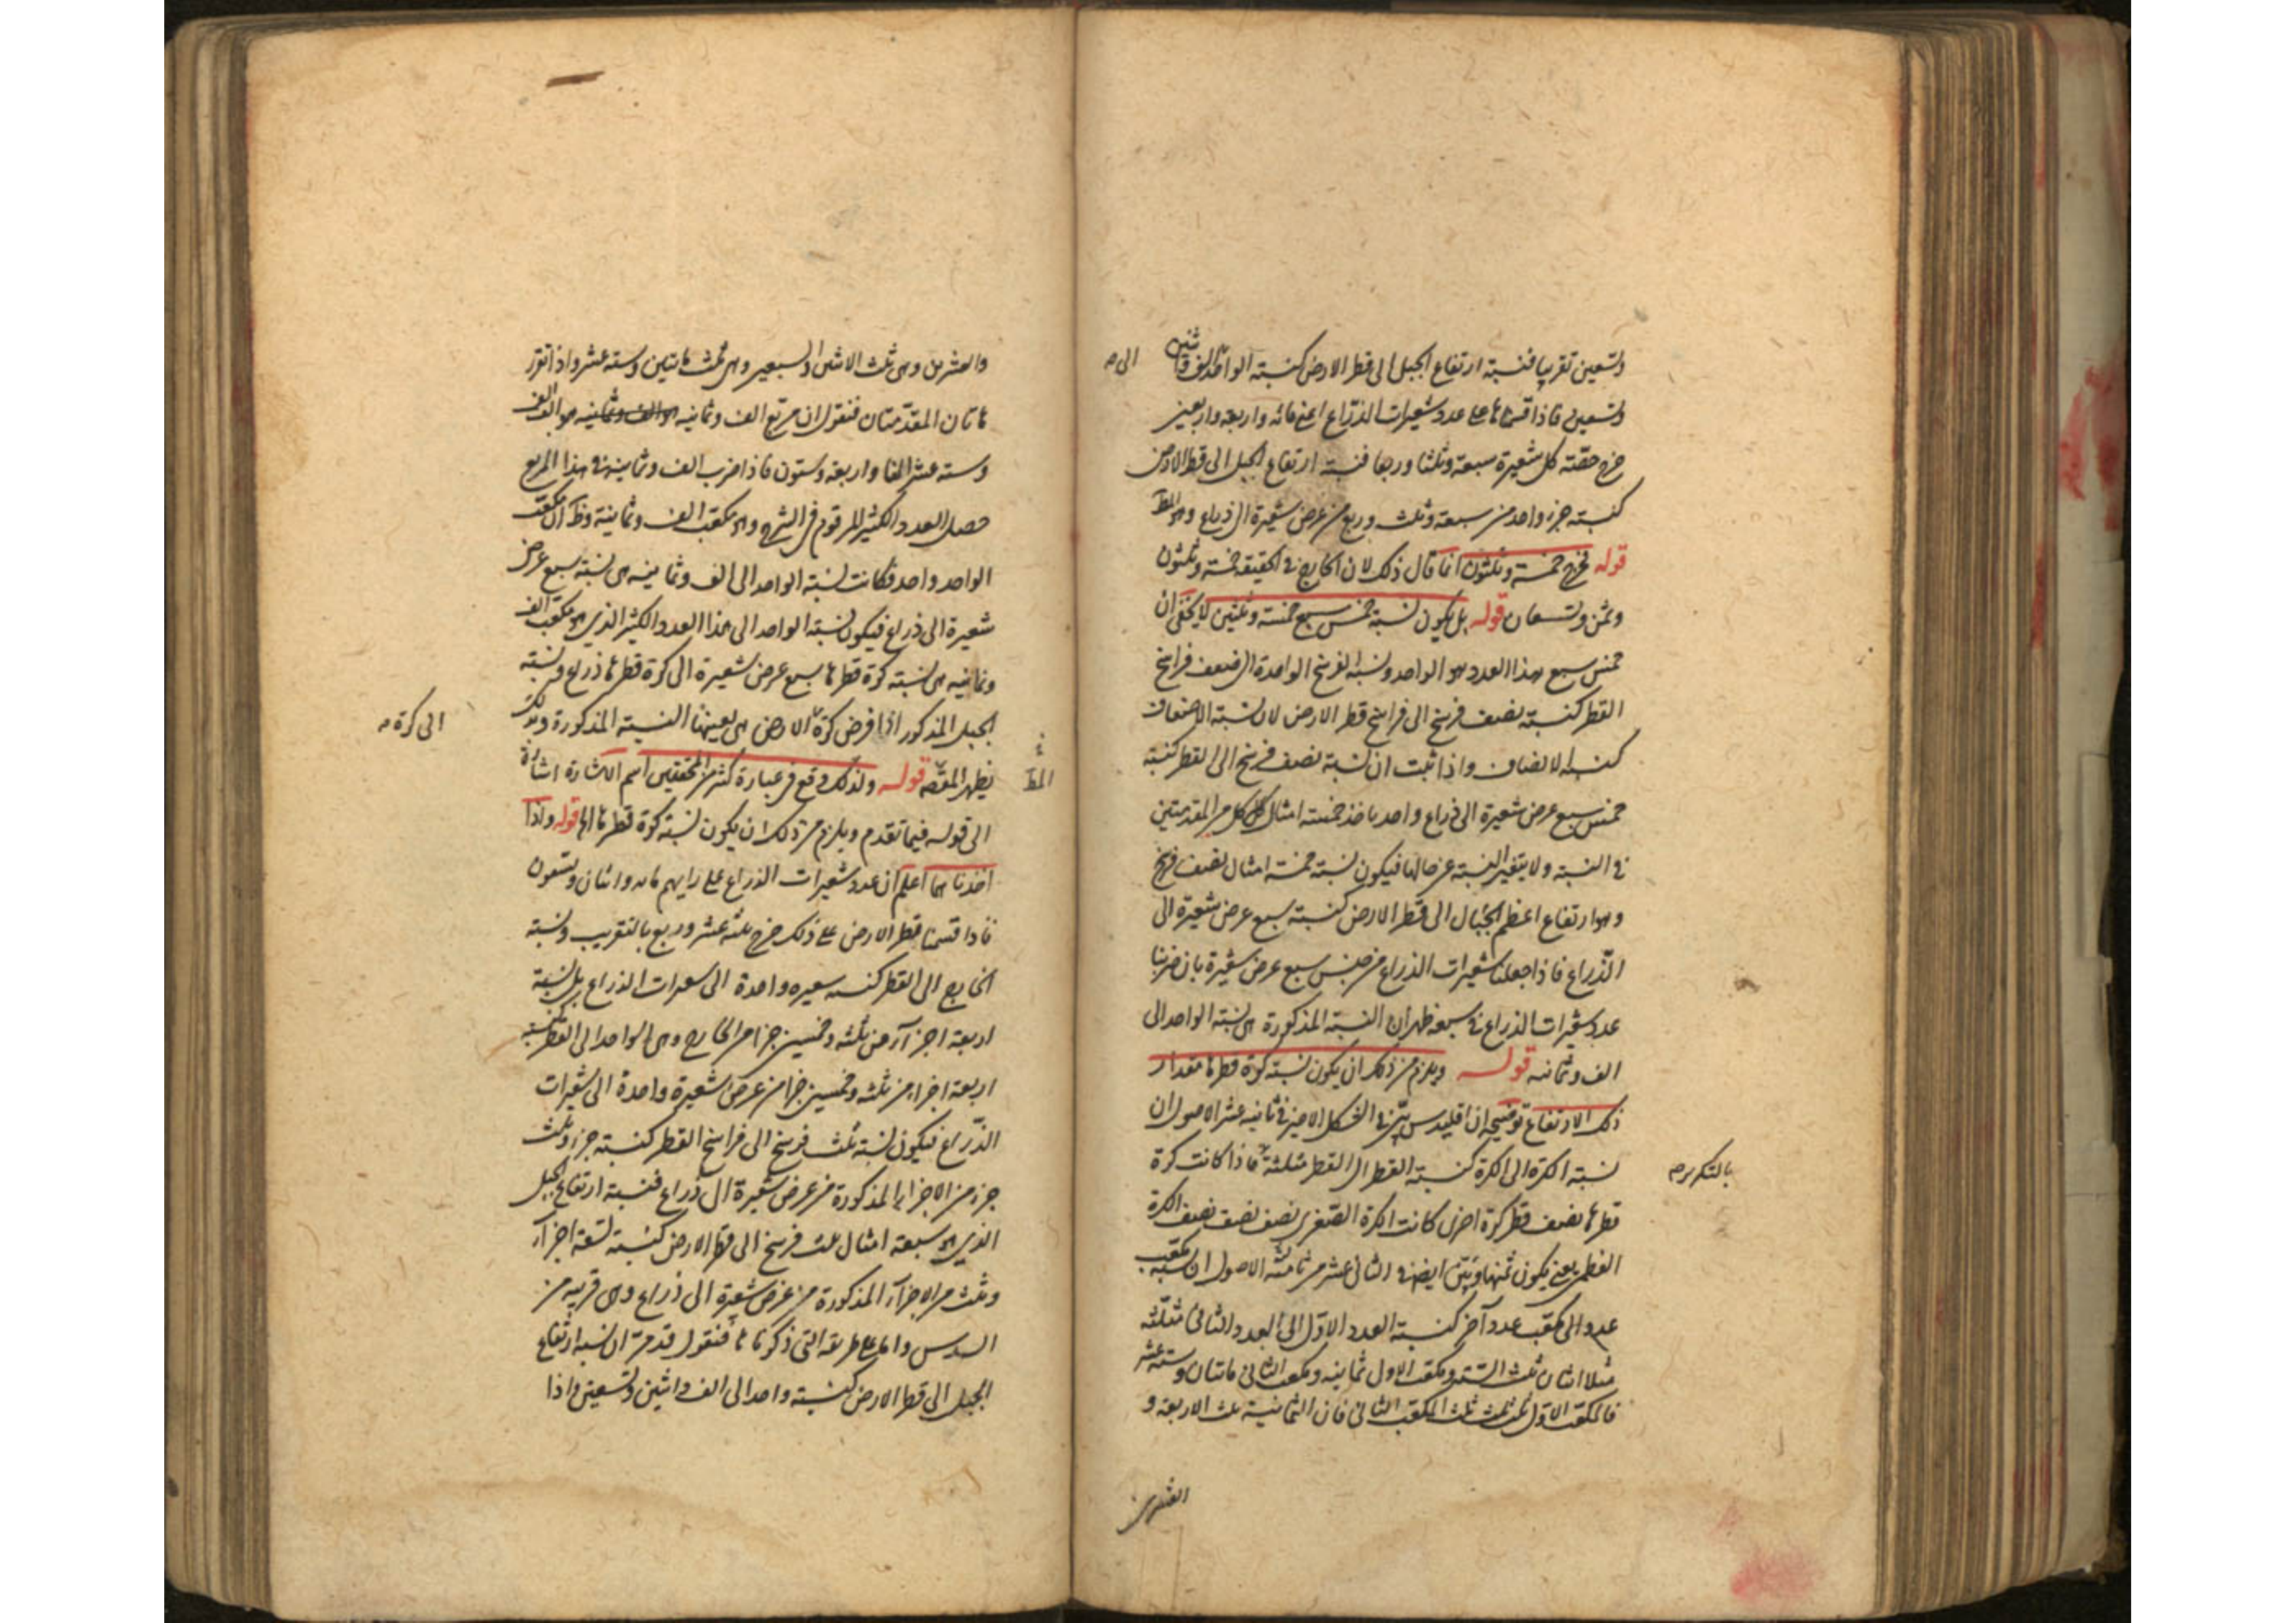 وتسعين تقريبا فنسبة ارتفاع الجبل الى قطر الارض كنسبة الواحد الى الف واثنين
الى
وتسعين فاذا قسمناها على عدد شعيرات الذراع اعنى مائه واربعة واربعين
خرج حصّة كل شعيرة سبعة وثلثا وربعا فنسبة ارتفاع الجبل الى قطر الارض
كنسبة جزء واحد من سبعة وثلث وربع من عرض شعيرة الى ذراع وهو المط
قوله فخرج خمسة وثلثون انما قال ذلك لان الخارج فى الحقيقة خمسة وثلثون
وثمن وتسعان قوله بل يكون نسبة خمس سبع خمسة وثلثين لا يخفى ان
خمس سبع هذا العدد هو الواحد ونسبة الفرسخ الواحدة الى ضعف فراسخ
القطر كنسبة نصف فرسخ الى فراسخ قطر الارض لان نسبة الاضعاف
كنسبة الانصاف واذا ثبت ان نسبة نصف فرسخ الى القطر كنسبة
خمس سبع عرض شعيرة الى ذراع واحد ناخذ خمسة امثال كل من المقدمتين
فى النسبة ولا يتغير النسبة عن حالها فيكون نسبة خمسة امثال نصف فرسخ
وهو ارتفاع اعظم الجبال الى قطر الارض كنسبة سبع عرض شعيرة الى
الذّراع فاذا جعلنا شعيرات الذراع من جنس سبع عرض شعيرة بان ضربنا
عدد شعيرات الذراع فى سبعة ظهر ان النسبة المذكورة هى نسبة الواحد الى
الف وثمانيه قوله ويلزم من ذلك ان يكون نسبة كرة قطرها مقدار
ذلك الارتفاع توضيحه ان اقليدس بيّن فى الشكل الاخير فى ثانية عشر الاصول ان
نسبة الكرة الى الكرة كنسبة القطر الى القطر مثلثة فاذا كانت كرة
بالتكرير
قطرها نصف قطر كرة اخرى كانت الكرة الصغرى نصف نصف نصف الكرة
العظمى يعنى يكون ثمنها وبيّن ايضا فى الثانى عشر من ثامنة الاصول ان نسبة مكعب
عدد الى مكعب عدد آخر كنسبة العدد الاوّل الى العدد الثانى مثلّثه
مثلا اثنان ثلث الستة ومكعب الاول ثمانيه ومكعب الثانى مائتان وستة عشر
فالمكعب الاوّل ثلث ثلث ثلث المكعب الثانى فان الثمانية ثلث الاربعة و
العشرين
والعشرين وهى ثلث الاثنين والسبعين وهى ثلث مائتين وستة عشر واذا تقرر
هاتان المقدّمتان فنقول ان مربّع الف وثمانيه هو الف الف
وستة عشر الفا واربعة وستون فاذا ضرب الف وثمانيه فى هذا المربع
حصل العدد الكثير المرقوم فى الشرح وهو مكعّب الف وثمانية وظ ان مكعّب
الواحد واحد فكانت نسبة الواحد الى الف وثمانيه هى نسبة سبع عرض
شعيرة الى ذراع فيكون نسبة الواحد الى هذا العدد الكثير الذى هو مكعّب الف
وثمانيه هى نسبة كرة قطرها سبع عرض شعيرة الى كرة قطرها ذراع ونسبة
الجبل المذكور اذا فرض كرة الارض هى بعينها النسبة المذكورة وبذلك
الى كرة
يظهر المقصه قوله ولذلك وقع فى عبارة كثير من المحققين اسم الاشارة اشارة
المط
الى قوله فيما تقدم ويلزم من ذلك ان يكون نسبة كرة قطرها الها قوله واذا
اخذناهما اعلم ان عدد شعيرات الذراع على رايهم مايه واثنان وتسعون
فاذا قسمنا قطر الارض على ذلك خرج ثلثة عشر وربع بالتقريب ونسبة
الخارج الى القطر كنسبه شعيره واحدة الى شعيرات الذراع بل نسبة
اربعة اجزآء من ثلثه وخمسين جزا من الخارج وهى الواحد الى القطر كنسبة
اربعة اجزاء من ثلثه وخمسين جزا من عرض شعيرة واحدة الى شعيرات
الذّراع فيكون نسبة ثلث فرسخ الى فراسخ القطر كنسبة جزء وثلث
جزء من الاجزاء المذكورة من عرض شعيرة الى ذراع فنسبة ارتفاع الجبل
الذى هو سبعة امثال ثلث فرسخ الى قطر الارض كنسبة تسعة اجزآء
وثلث من الاجزآء المذكورة من عرض شعيرة الى ذراع وهى قريبه من
السدس واما على طريقه التى ذكرناها فنقول قد مرّ ان نسبه ارتفاع
الجبل الى قطر الارض كنسبة واحد الى الف واثنين وتسعين واذا